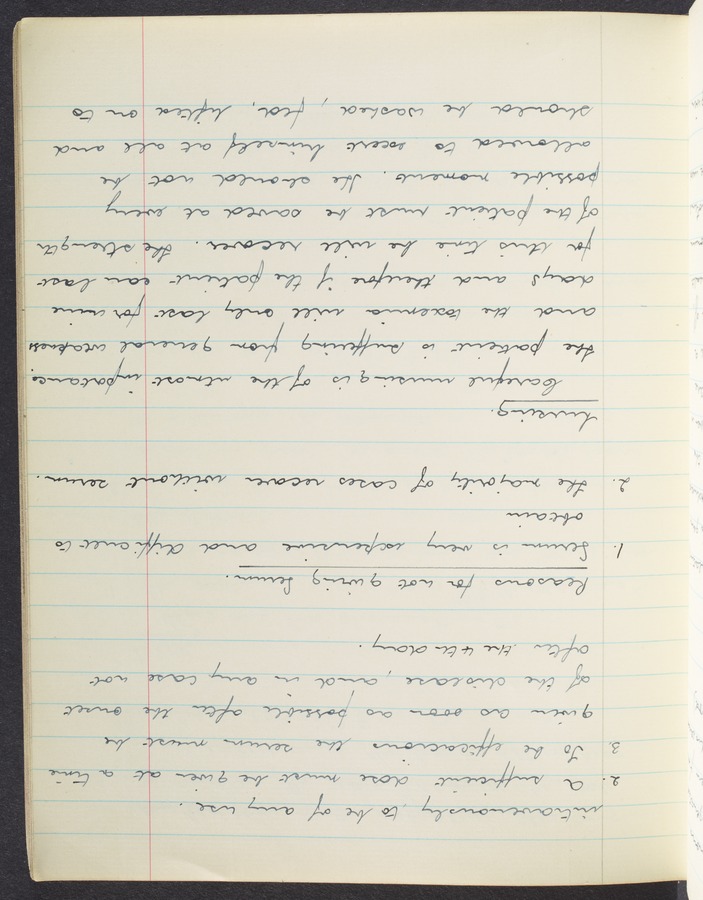 intravenously, to be of any use.
2. A sufficient dose must be given at a time
3. To be efficacious the serum must be
given as soon as possible after the onset
of the disease, and in any case not
after the 4th day.
Reasons for not giving Serum.
1. Serum is very expensive and difficult to
obtain
2. The majority of cases recover without serum.
Nursing.
Careful nursing is of the utmost importance.
the patient is suffering from general weakness
and the toxemia will only last for nine
days and therefore if the patient can last
for this time he will recover. The strength
of the patient must be saved at every
possible moment. He should not be
allowed to exert himself at all and
should be washed, fed, lifted on to